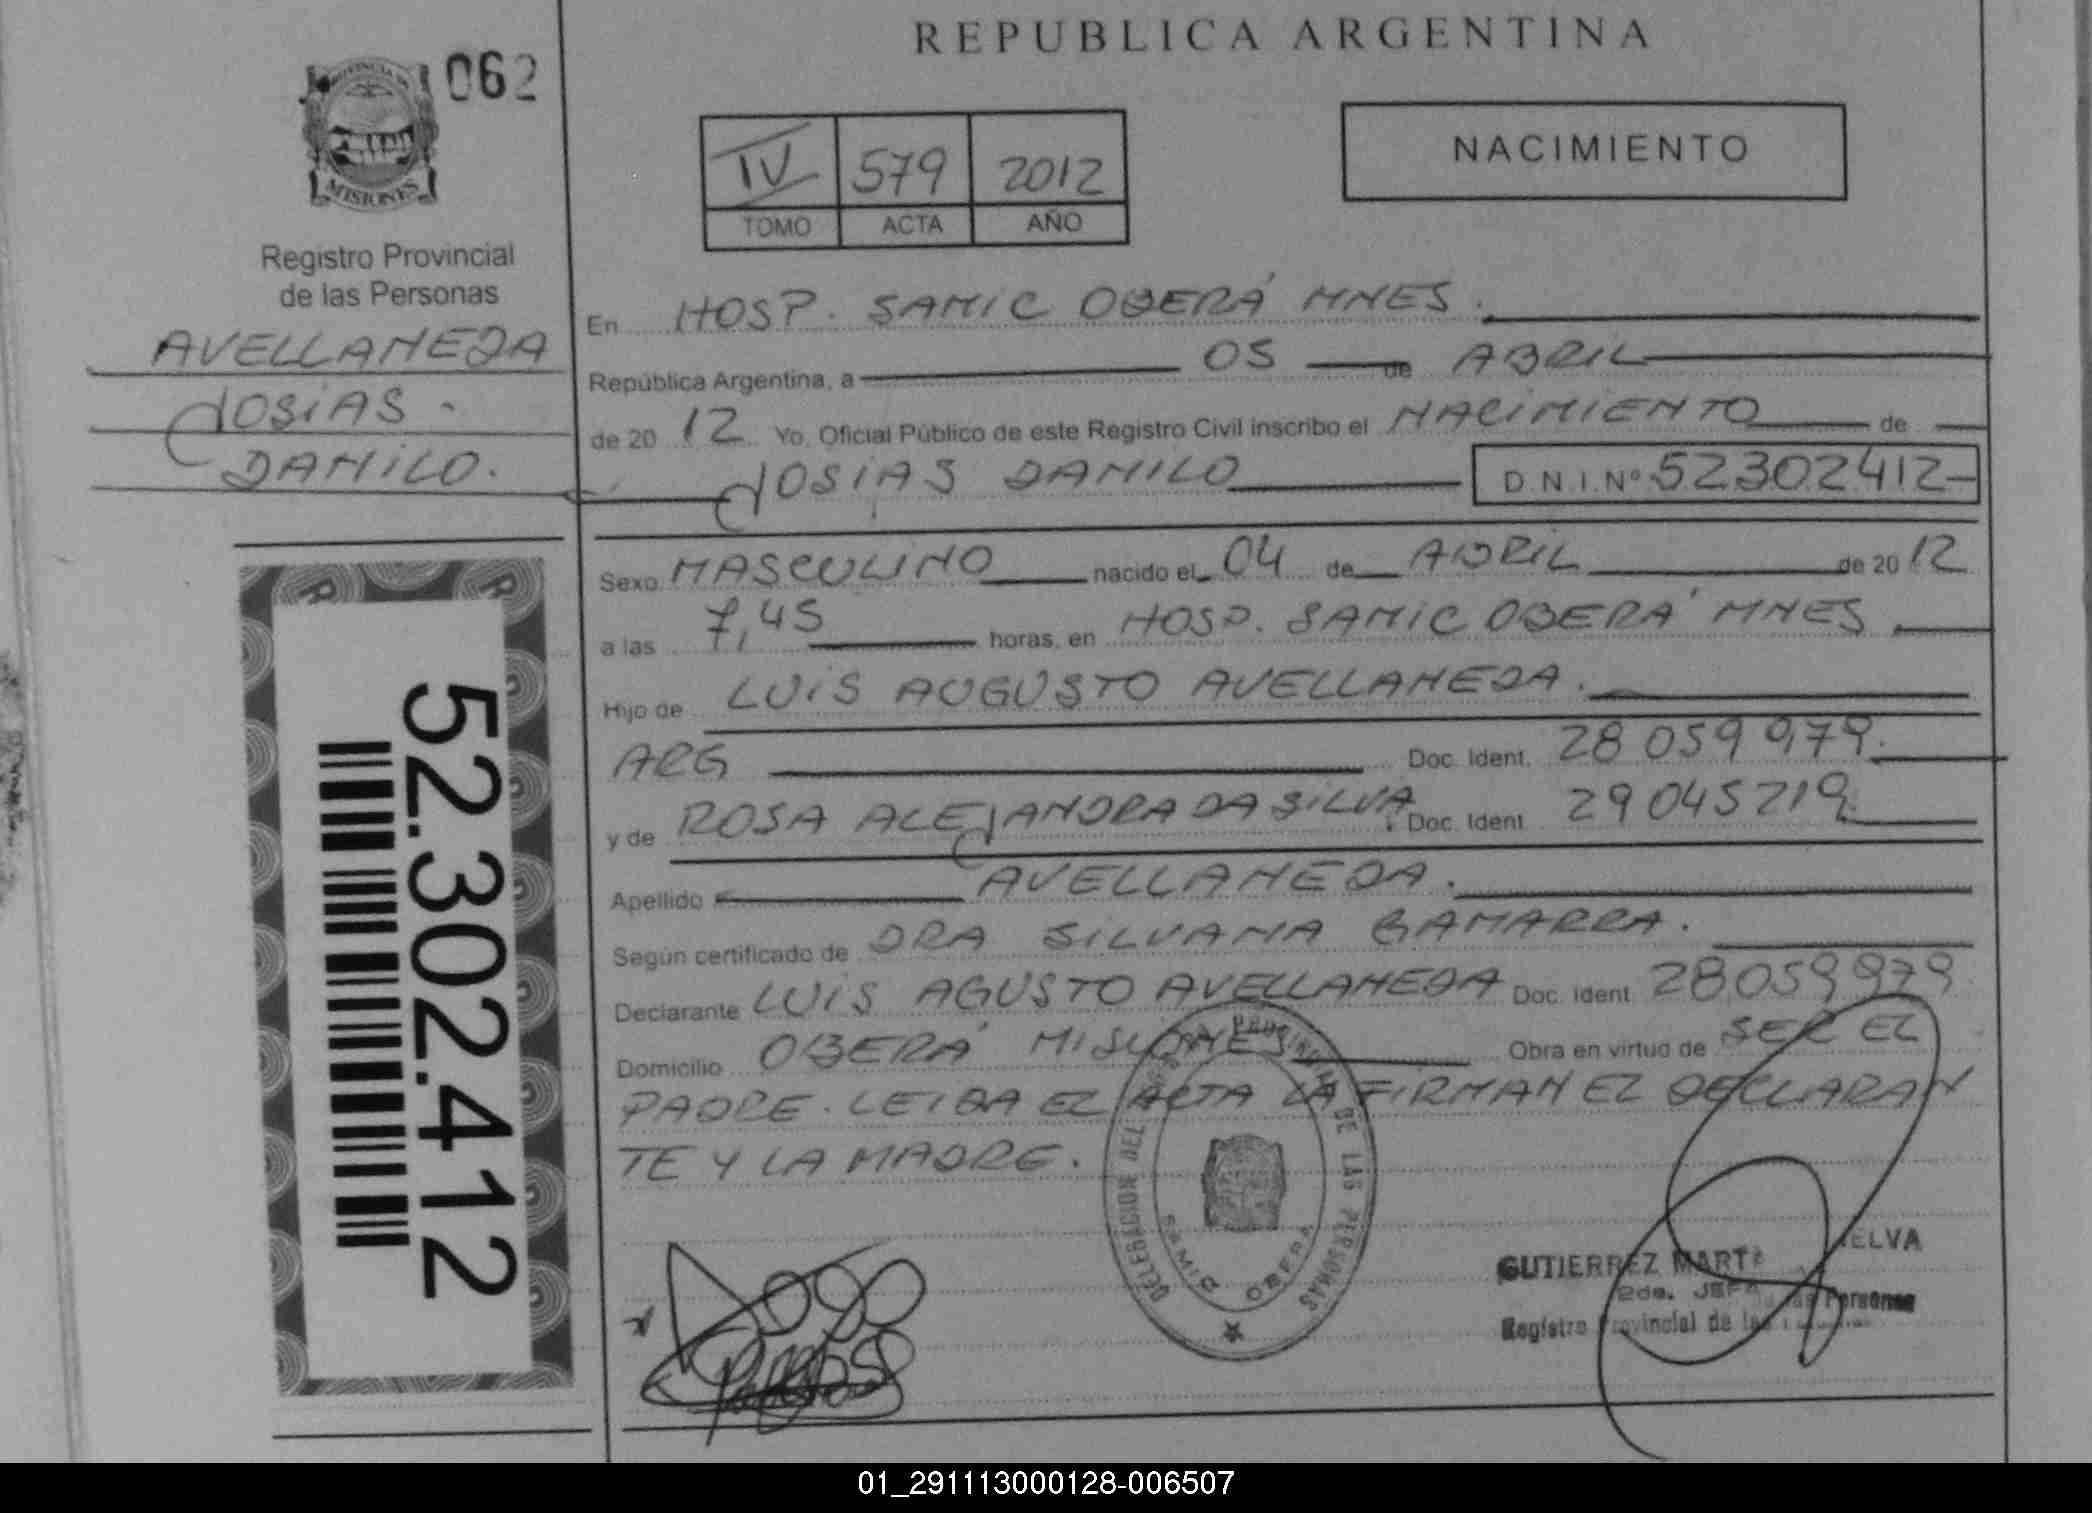 REPUBLICA ARGENTINA
PROVINCIA DE
MISIONES
062
Registro Provincial
de las Personas
AVELLANEDA
JOSIAS -
DANILO.
52.302.412
IV 579 2012
TOMO ACTA AÑO
NACIMIENTO
En HOSP. SAMIC OBERÁ MNES.
República Argentina, a 05 de ABRIL
de 20 12 Yo, Oficial Público de este Registro Civil inscribo el NACIMIENTO de
JOSIAS DANILO D.N.I.Nº 52302412
Sexo MASCULINO nacido el 04 de ABRIL de 20 12
a las 7,45 horas, en HOSP. SAMIC OBERÁ MNES.
Hijo de LUIS AUGUSTO AVELLANEDA.
ARG Doc. Ident. 28 059 979.
y de ROSA ALEJANDRA DA SILVA. Doc. Ident. 29 045 219.
Apellido AVELLANEDA.
Según certificado de DRA SILVANA GAMARRA.
Declarante LUIS AGUSTO AVELLANEDA Doc. Ident. 28059979.
Domicilio OBERÁ MISIONES Obra en virtud de SER EL
PADRE. LEIDA EL ACTA LA FIRMAN EL DECLARAN
TE Y LA MADRE.
DELEGACION DEL PROVINCIAL DE LAS PERSONAS
SAMIC OBERA
GUTIERREZ ELVA
2da. JEF
Registro Provincial de las Personas
01_291113000128-006507